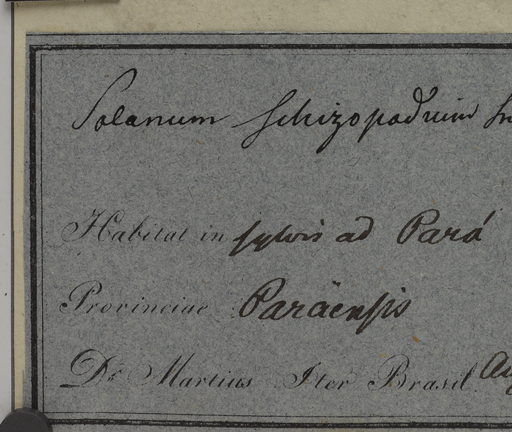 Solanum schizopodium
Habitat in sylvis ad Pará
Provinciae Paräensis
Dr. Martius Iter Brasil.